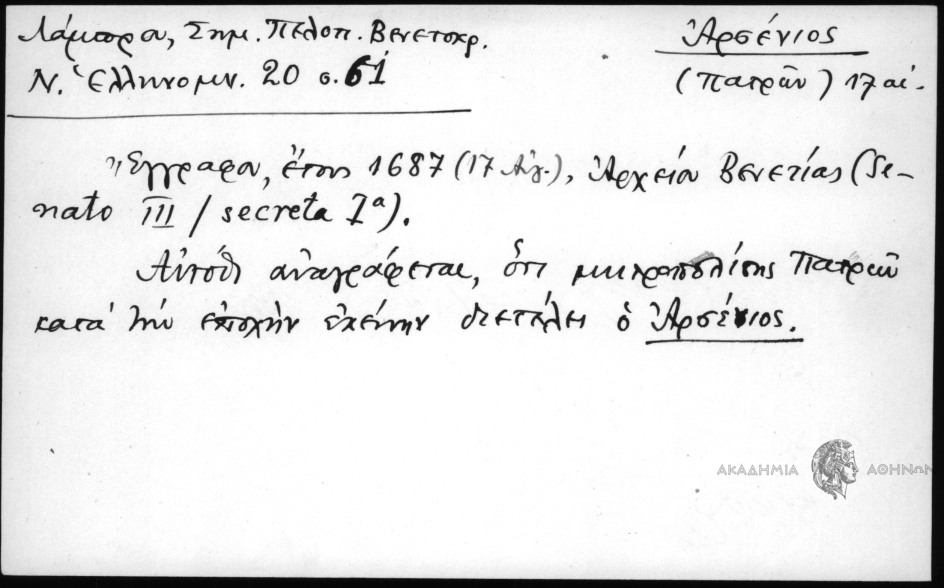 Λάμπρου, Σημ. Πελοπ. Βενετοκρ.
Ν. Ἑλληνομν. 20 σ. 61
Ἀρσένιος
(Πατρῶν) 17 αἰ.
Ἔγγραφα, ἔτους 1687 (17 Αὐγ.), Ἀρχεῖα Βενετίας (Se-
nato III / secreta Iª).
Αὐτόθι ἀναγράφεται, ὅτι μητροπολίτης Πατρῶν
κατὰ τὴν ἐποχὴν ἐκείνην διετέλει ὁ Ἀρσένιος.
ΑΚΑΔΗΜΙΑ ΑΘΗΝΩΝ